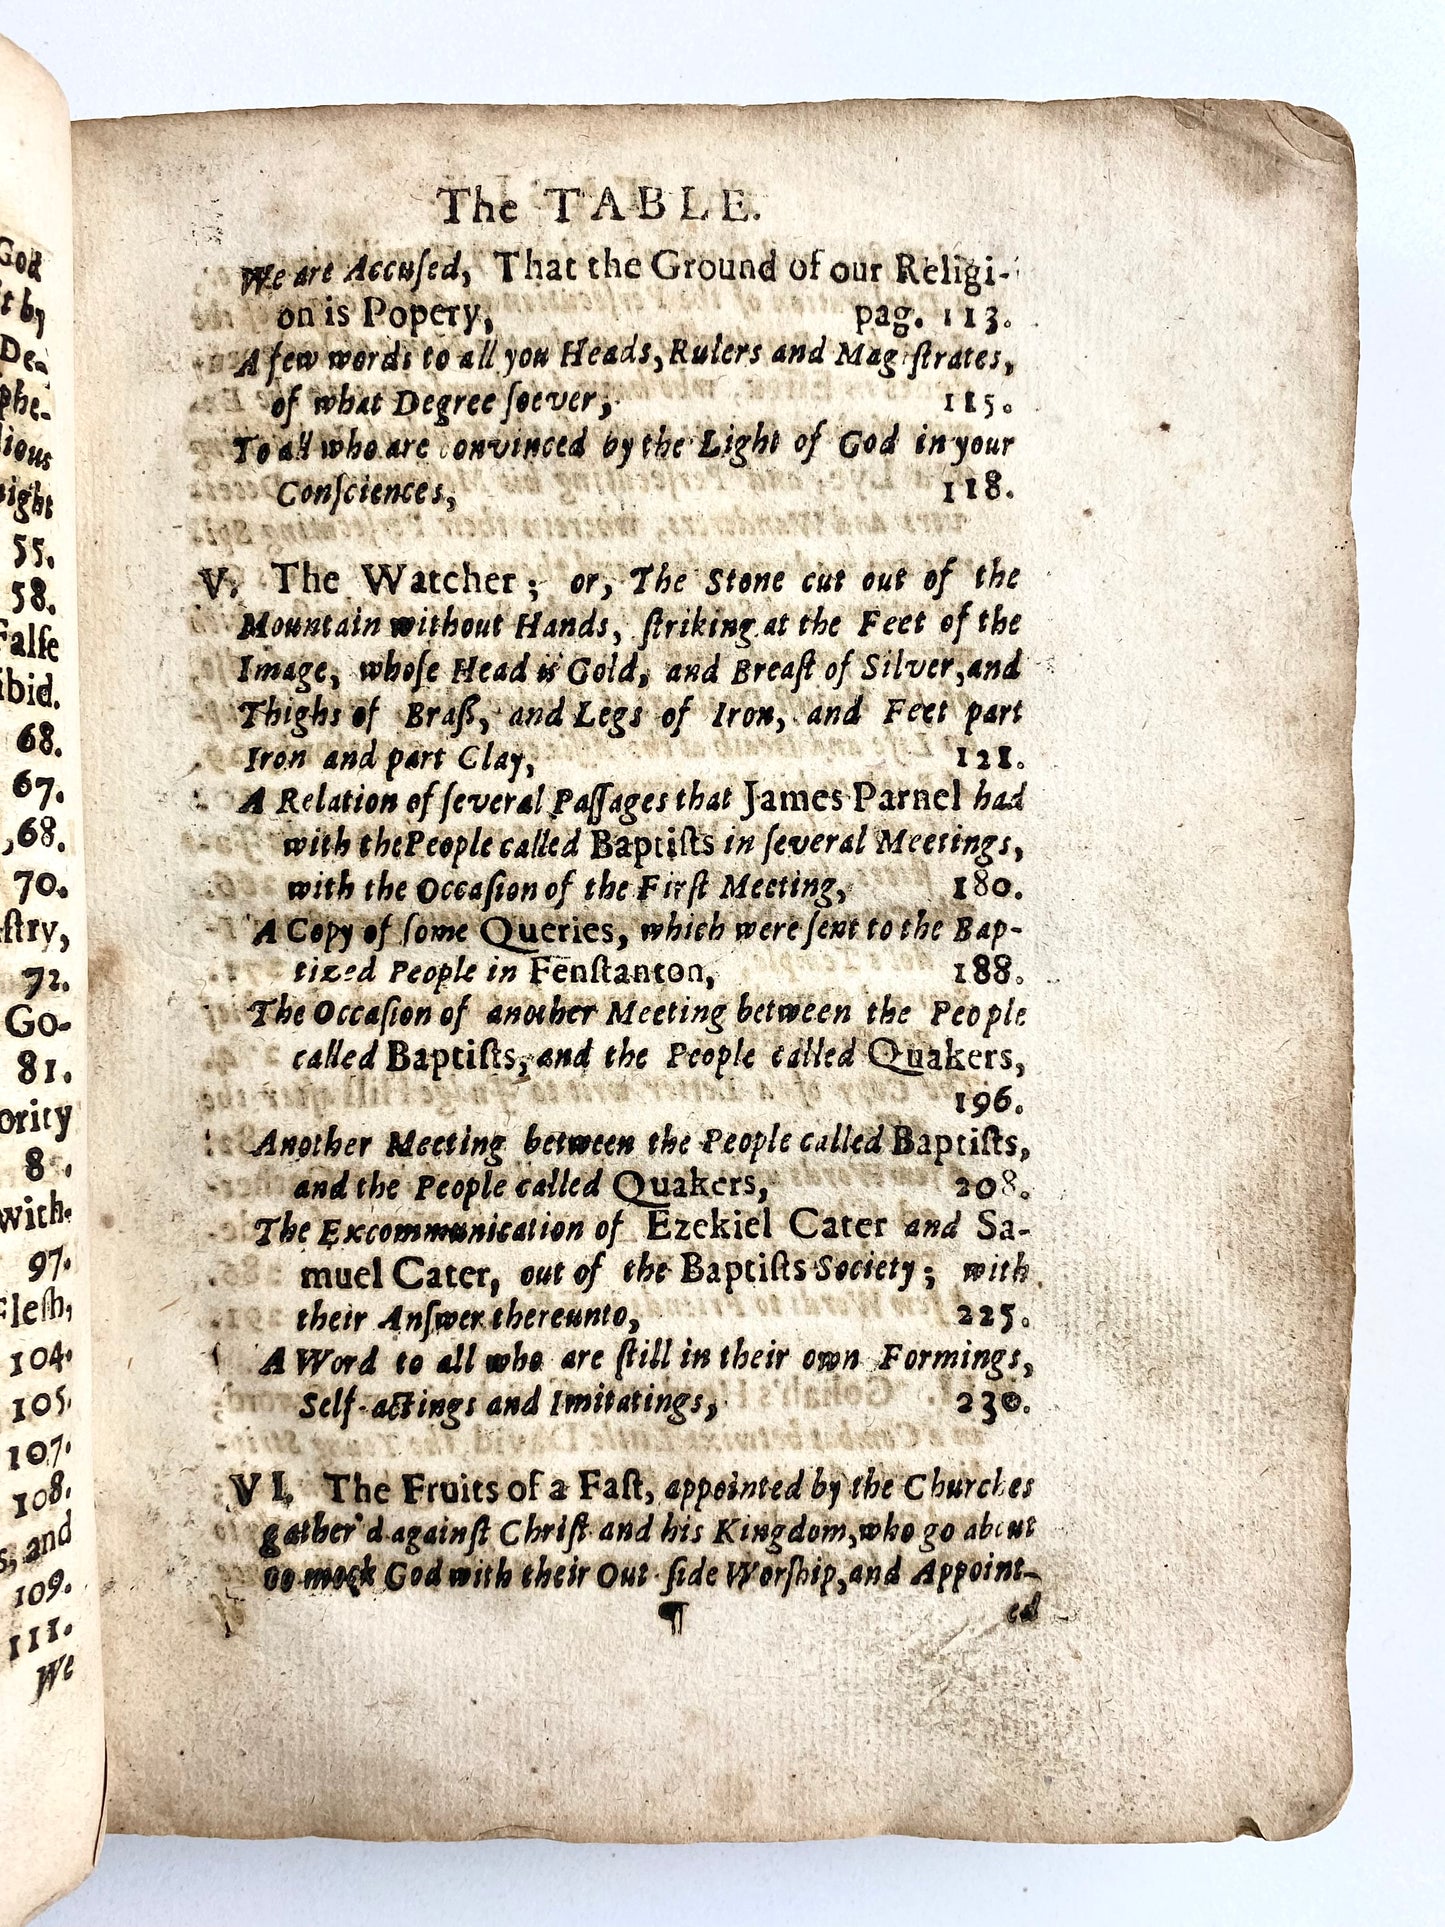 God
t by
De-
phe-
lious
night
55.
58.
False
ibid.
68.
67.
,68.
70.
stry,
72.
Go-
81.
ority
8 .
with-
97.
Flesh,
104.
105.
107.
108.
s, and
109.
111.
We
The TABLE.
We are Accuſed, That the Ground of our Religi-
on is Popery, pag. 113.
A few words to all you Heads, Rulers and Magiſtrates,
of what Degree ſoever, 115.
To all who are convinced by the Light of God in your
Conſciences, 118.
V. The Watcher; or, The Stone cut out of the
Mountain without Hands, ſtriking at the Feet of the
Image, whoſe Head is Gold, and Breaſt of Silver, and
Thighs of Braſs, and Legs of Iron, and Feet part
Iron and part Clay, 121.
A Relation of ſeveral Paſſages that James Parnel had
with the People called Baptiſts in ſeveral Meetings,
with the Occaſion of the Firſt Meeting, 180.
A Copy of ſome Queries, which were ſent to the Bap-
tized People in Fenſtanton, 188.
The Occaſion of another Meeting between the People
called Baptiſts, and the People called Quakers,
196.
Another Meeting between the People called Baptiſts,
and the People called Quakers, 208.
The Excommunication of Ezekiel Cater and Sa-
muel Cater, out of the Baptiſts Society; with
their Anſwer thereunto, 225.
A Word to all who are ſtill in their own Formings,
Self-actings and Imitatings, 230.
VI. The Fruits of a Faſt, appointed by the Churches
gather'd againſt Chriſt and his Kingdom, who go about
to mock God with their Out-ſide Worſhip, and Appoint-
¶ ed